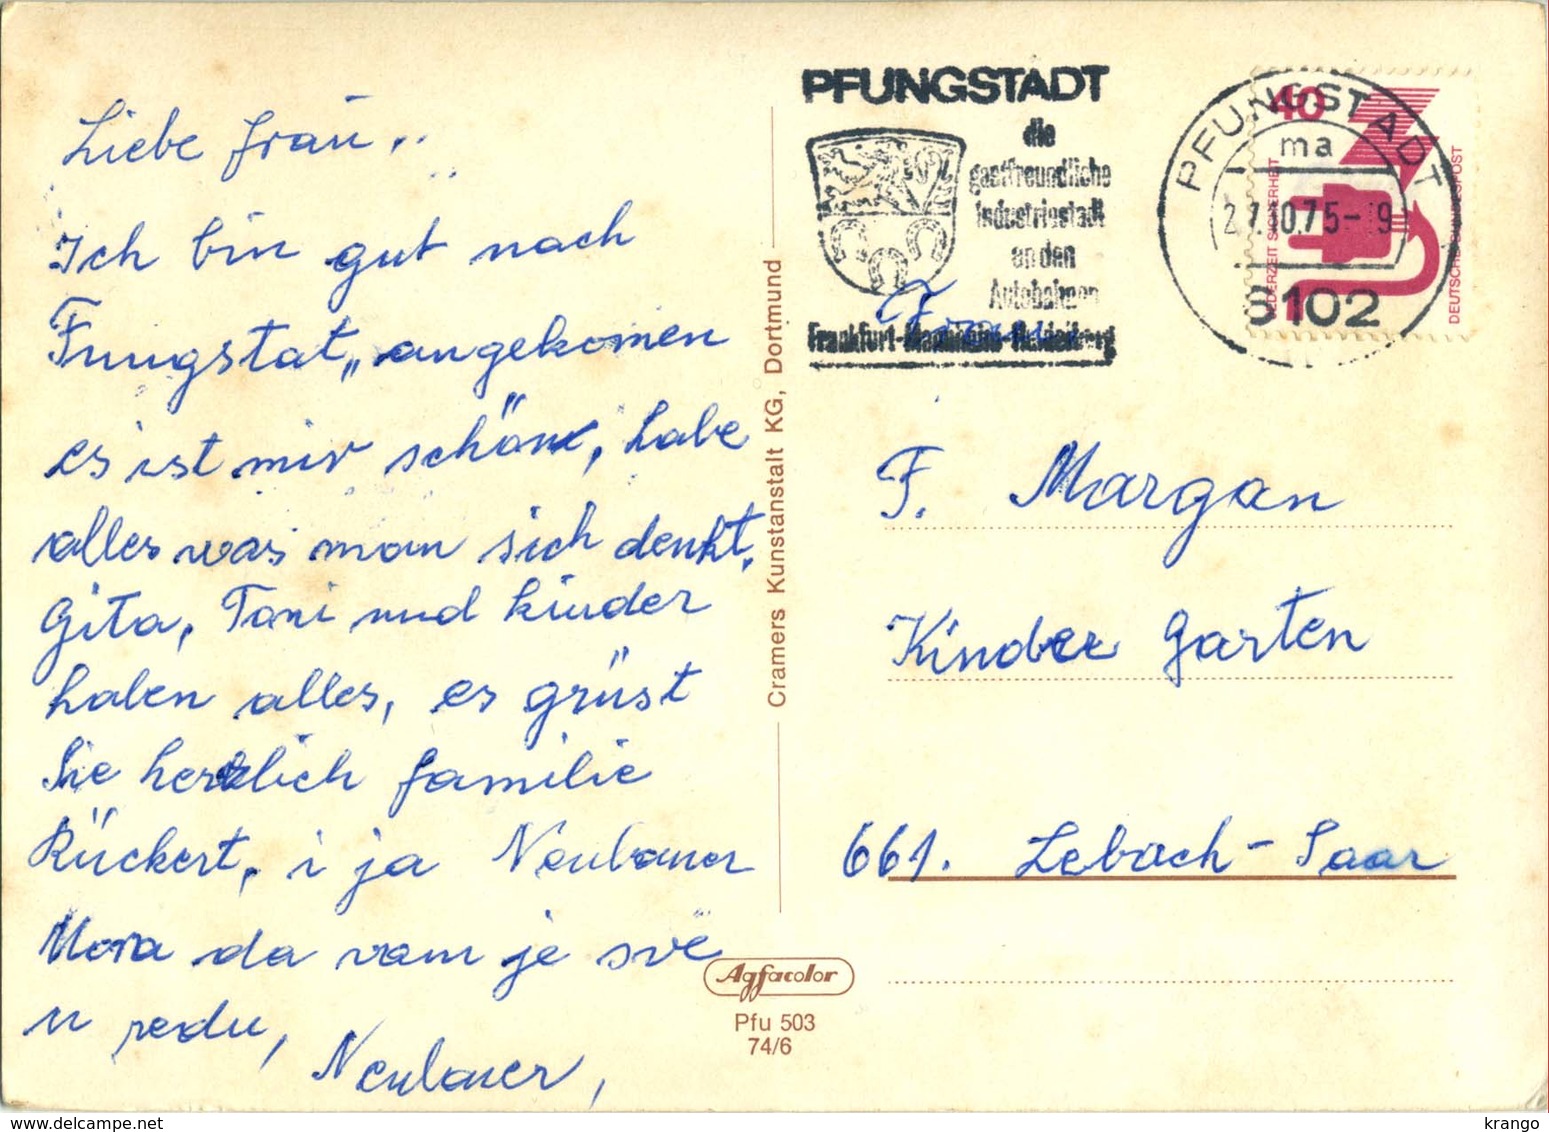 Liebe Frau,..
Ich bin gut nach
Fungstat,, angekomen
es ist mir schön, habe
alles was man sich denkt.
Gita, Toni und kinder
haben alles, es grüst
Sie herzlich familie
Rückert, i ja Neubauer
Mora da vam je sve
u redu,
Neubauer,
Cramers Kunstanstalt KG, Dortmund
Agfacolor
Pfu 503
74/6
PFUNGSTADT
die
gastfreundliche
Industriestadt
an den
Autobahnen
Frankfurt-Mannheim-Heidelberg
PFUNGSTADT
ma
6102
40
JEDERZEIT SICHERHEIT
DEUTSCHE BUNDESPOST
Frau
F. Margan
Kinder garten
661. Lebach - Saar
www.delcampe.net
krango